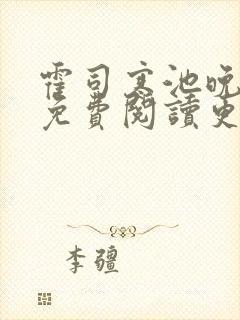 霍司寒池晚
免費閱讀更
李疆